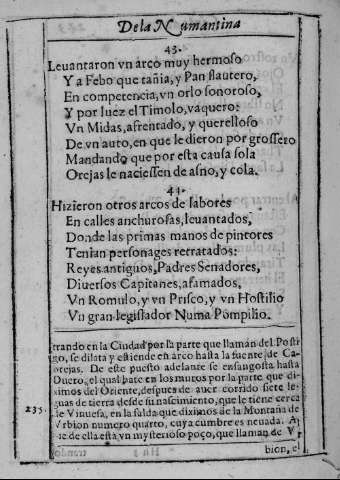 De la Numantina
43.
Leuantaron vn arco muy hermoso
Y a Febo que tañia, y Pan flautero,
En competencia, vn orlo sonoroso,
Y por Iuez el Timolo, vaquero:
Vn Midas, afrentado, y querelloso
De vn auto, en que le dieron por grossero
Mandando que por esta causa sola
Orejas le naciessen de asno, y cola.
44.
Hizieron otros arcos de labores
En calles anchurosas, leuantados,
Donde las primas manos de pintores
Tenian personages retratados:
Reyes antiguos, Padres Senadores,
Diuersos Capitanes, afamados,
Vn Romulo, y vn Prisco, y vn Hostilio
Vn gran legislador Numa Pompilio.
trando en la Ciudad por la parte que llaman del Posti
go, se dilata y estiende en arco hasta la fuente de Ca
orejas. De este puesto adelante se ensangosta hasta
Duero, el qual bate en los muros por la parte que di-
ximos del Oriente, despues de auer corrido siete le-
guas de tierra desde su nacimiento, que le tiene cerca
235. de Vinuesa, en la falda que diximos de la Montaña de
Vrbion numero quarto, cuya cumbre es neuada. A
pie de ella esta vn mysterioso poço, que llaman de Vr
bion, e